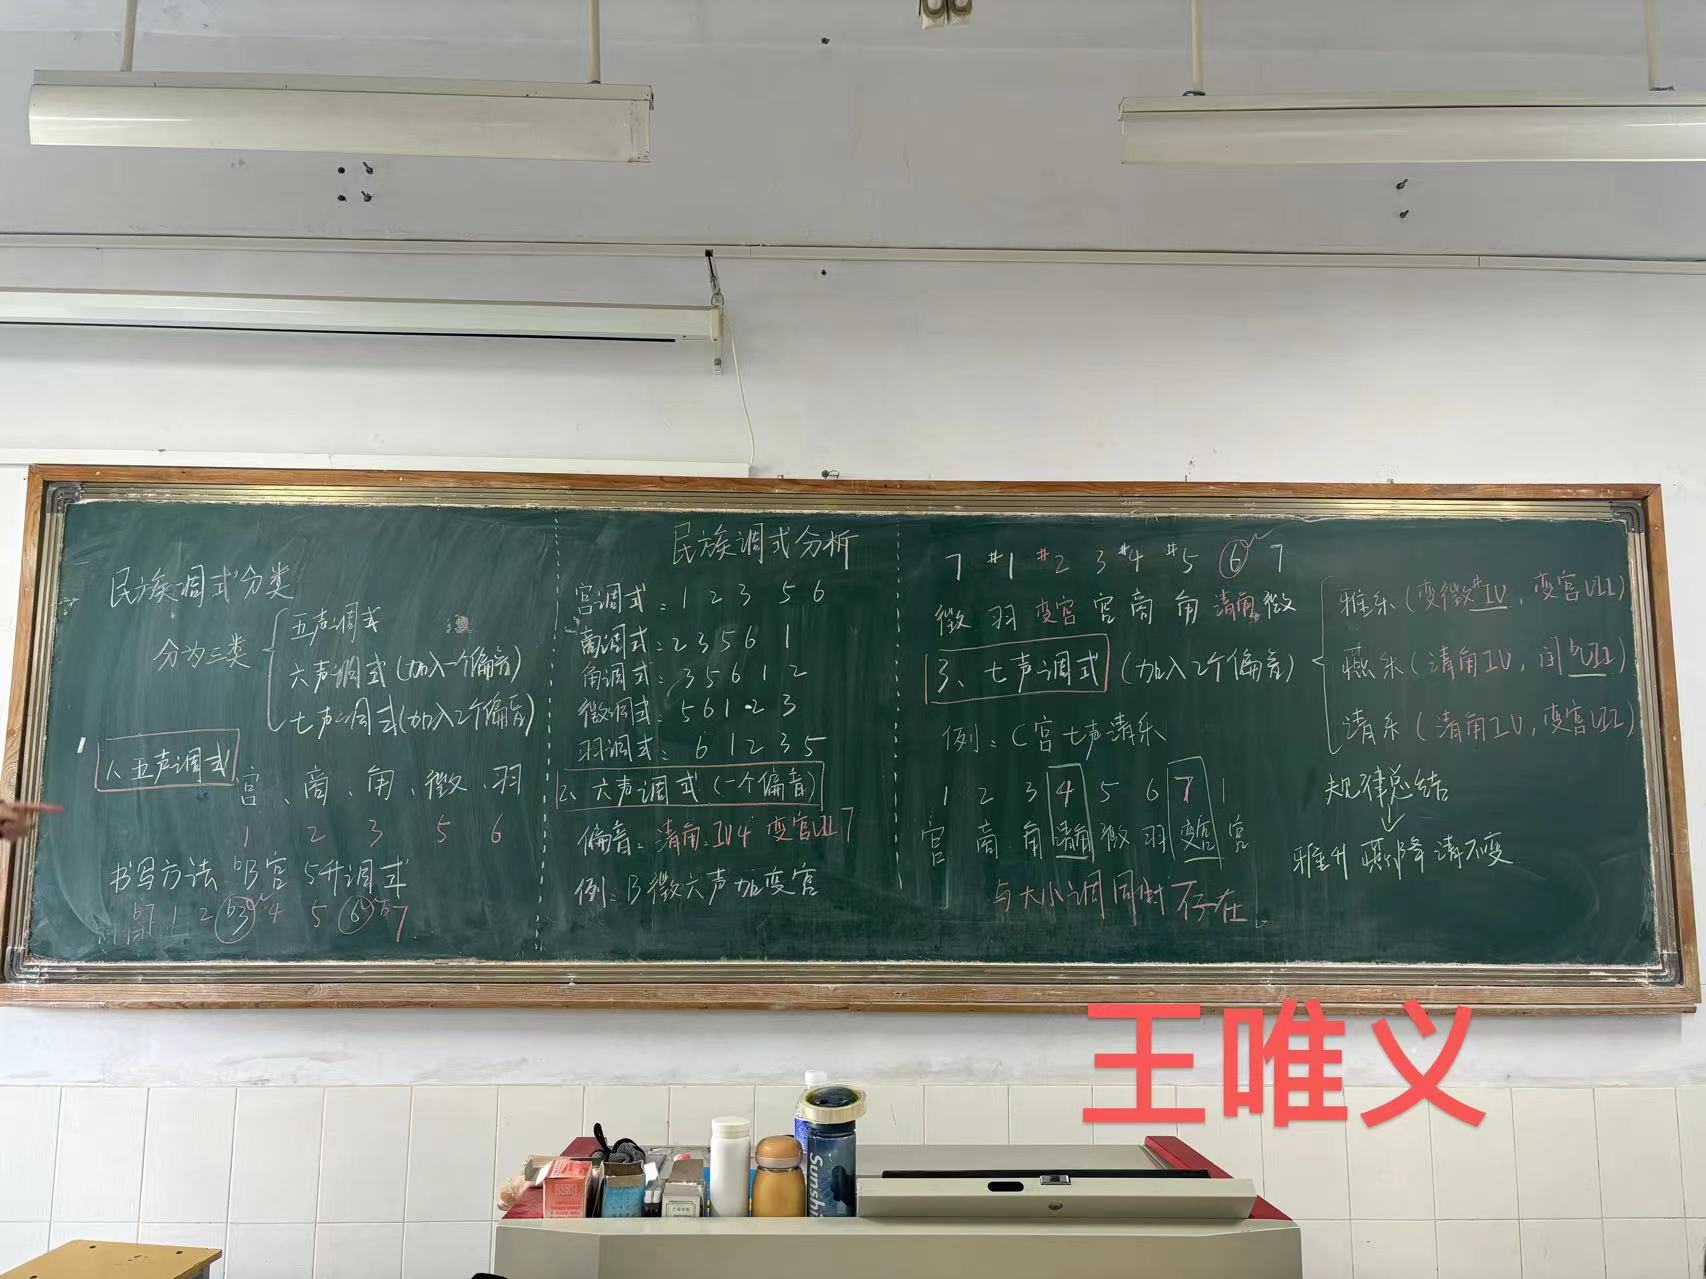 民族调式分类
分为三类
五声调式
六声调式(加入一个偏音)
七声调式(加入2个偏音)
1、五声调式
宫、商、角、徵、羽
1 2 3 5 6
书写方法 bB宫 5升调式
b7 1 2 b3 4 5 6 b7
民族调式分析
宫调式:1 2 3 5 6
商调式:2 3 5 6 1
角调式:3 5 6 1 2
徵调式:5 6 1 2 3
羽调式:6 1 2 3 5
2、六声调式(一个偏音)
偏音:清角:IV4 变宫VII7
例:B徵六声加变宫
7 #1 #2 3 #4 #5 6 7
徵 羽 变宫 宫 商 角 清角 徵
3、七声调式(加入2个偏音)
雅乐(变徵#IV,变宫VII)
燕乐(清角IV,闰bVII)
清乐(清角IV,变宫VII)
例:C宫七声清乐
1 2 3 4 5 6 7 1
宫 商 角 清角 徵 羽 变宫 宫
与大小调同时不存在。
规律总结
↓
雅升燕降清不变
王唯义
Sunshi